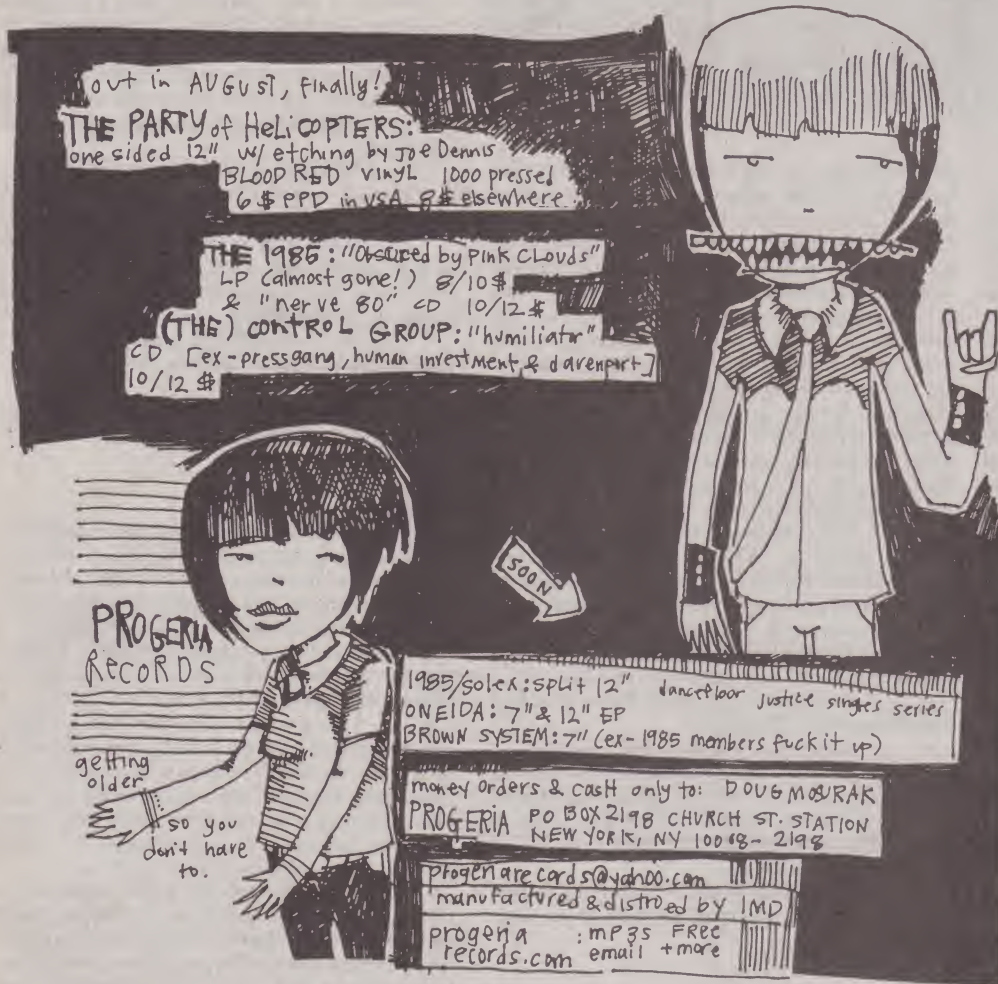 out in AUGUST, finally!
THE PARTY of HELICOPTERS:
one sided 12" w/ etching by Joe Dennis
BLOOD RED vinyl 1000 pressed
6 $ PPD in USA 8$ elsewhere
THE 1985: "Obscured by Pink Clouds"
LP (almost gone!) 8/10$
& "nerve 80" CD 10/12$
(THE) CONTROL GROUP: "humiliator"
CD [ex-pressgang, human investment & davenport]
10/12 $
SOON
PROGERIA
RECORDS
getting
older
so you
don't have
to.
1985/solex: split 12" dancefloor justice singles series
ONEIDA: 7" & 12" EP
BROWN SYSTEM: 7" (ex-1985 members fuck it up)
money orders & cash only to: DOUG MOSURAK
PROGERIA PO BOX 2198 CHURCH ST. STATION
NEW YORK, NY 10008-2198
progeriarecords@yahoo.com
manufactured & distroed by IMD
progeria : mp3s FREE
records.com email + more